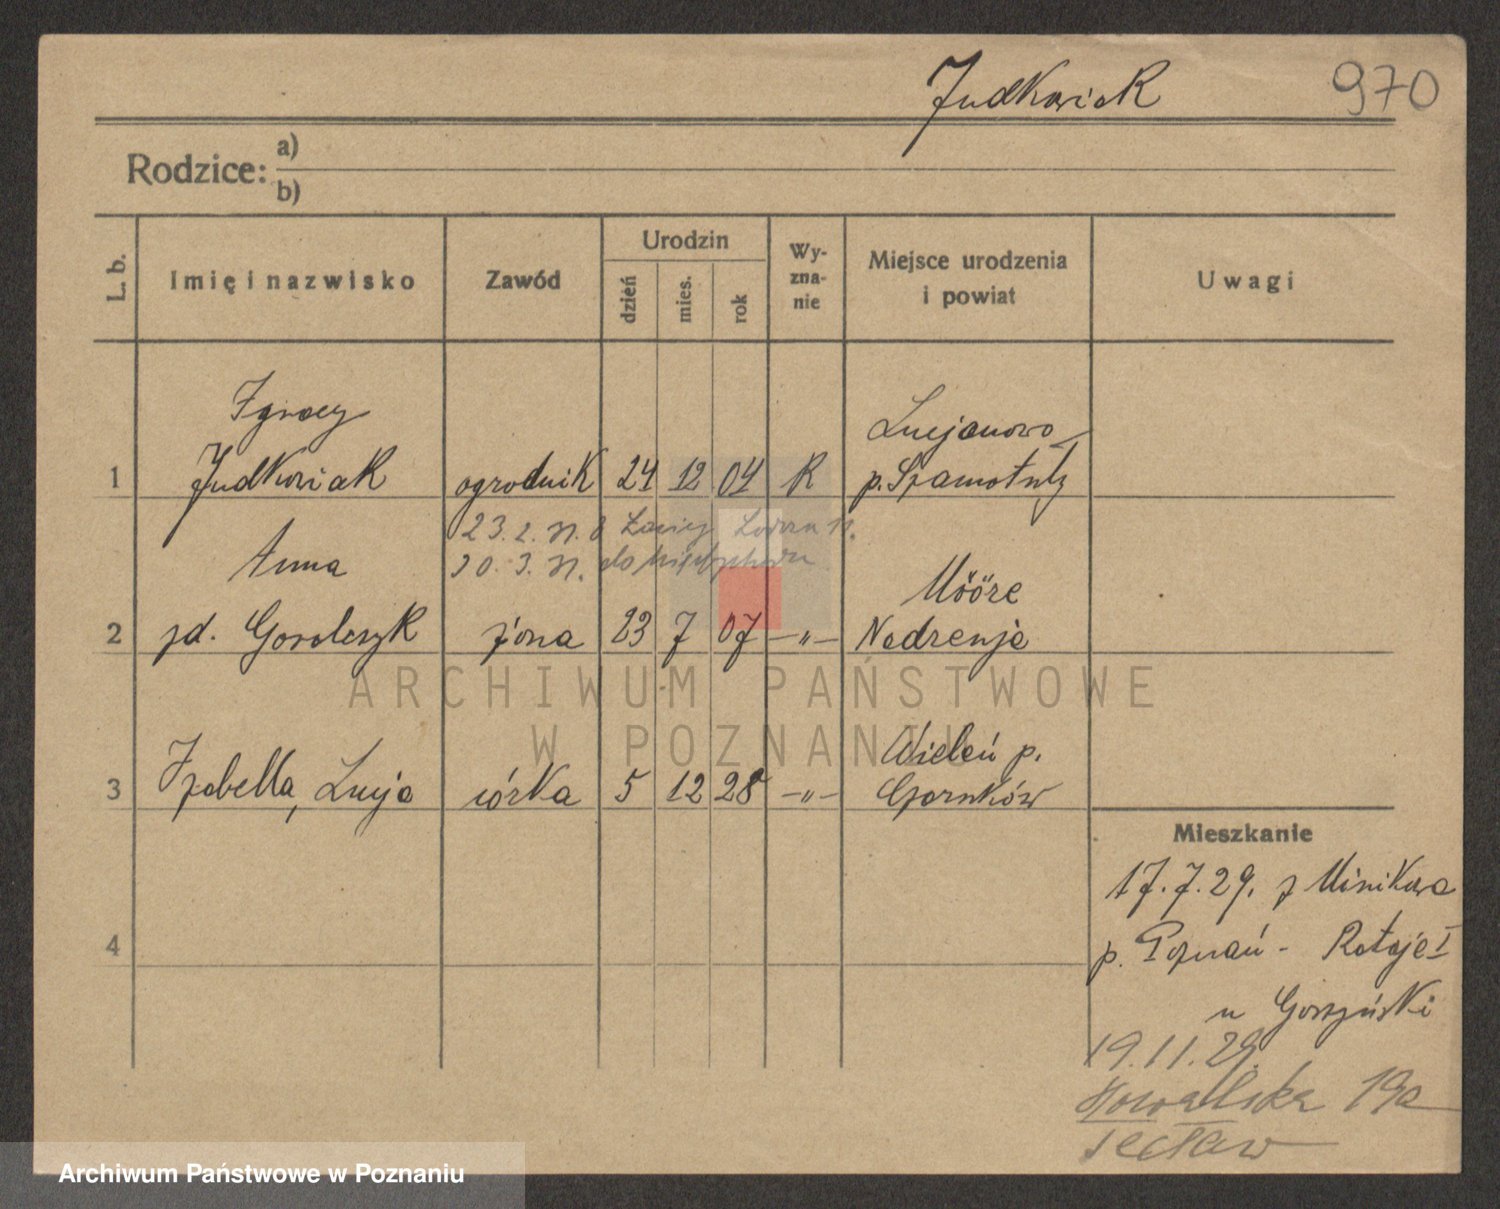 Judkowiak 970
Rodzice: a)
b)
L. b. Imię i nazwisko Zawód Urodzin dzień mies. rok Wy-zna-nie Miejsce urodzenia i powiat Uwagi
Ignacy
Lucjanowo
1 Judkowiak ogrodnik 24 12 04 R p. Szamotuły
23. 2. 31.
Anna 30. 3. 31. do
Mööre
2 zd. Goroleszyk żona 23 7 07 -"- Nadrenja
ARCHIWUM PAŃSTWOWE
W POZNANIU
Wieleń p.
3 Izabella, Lucja córka 5 12 28 -"- Czarnków
Mieszkanie
17.7.29. z Minikowa
4 p. Poznań - Rataje I
u Gorzyński
19.11.29.
19a
Archiwum Państwowe w Poznaniu